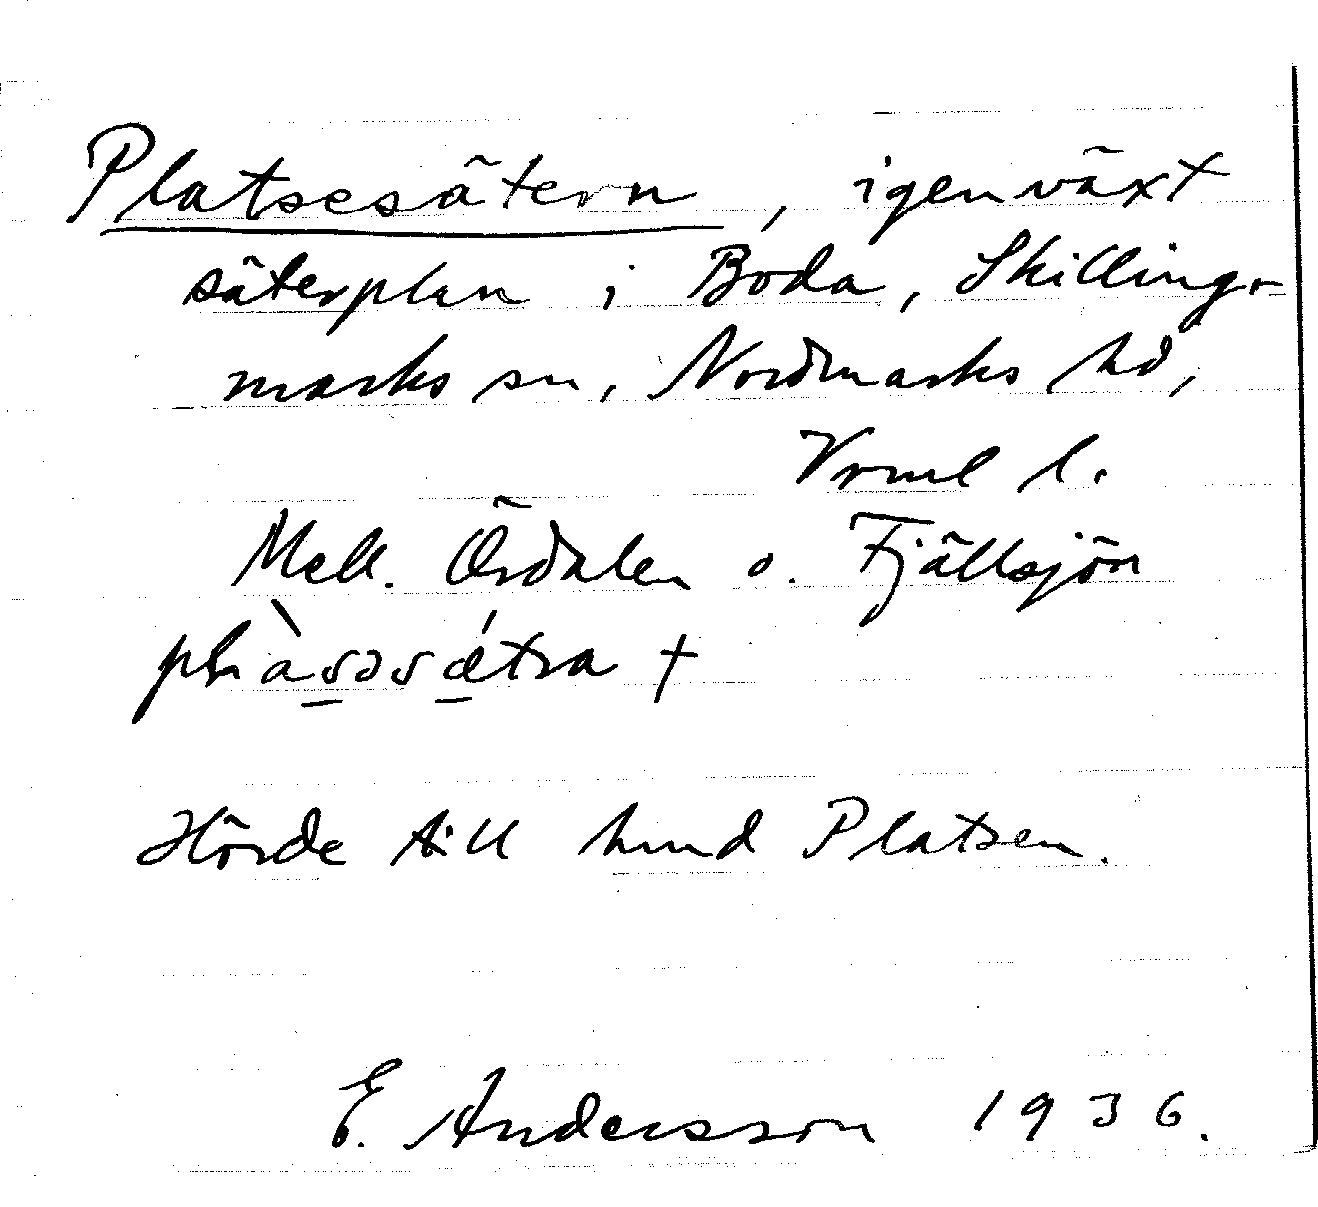 Platsesätern, igenväxt
säterplan i Boda, Skillings-
marks sn, Nordmarks hd,
Vrml l.
Mell. Ördalen o. Fjällsjön
Hörde till hmd Platsen.
E. Andersson 1936.